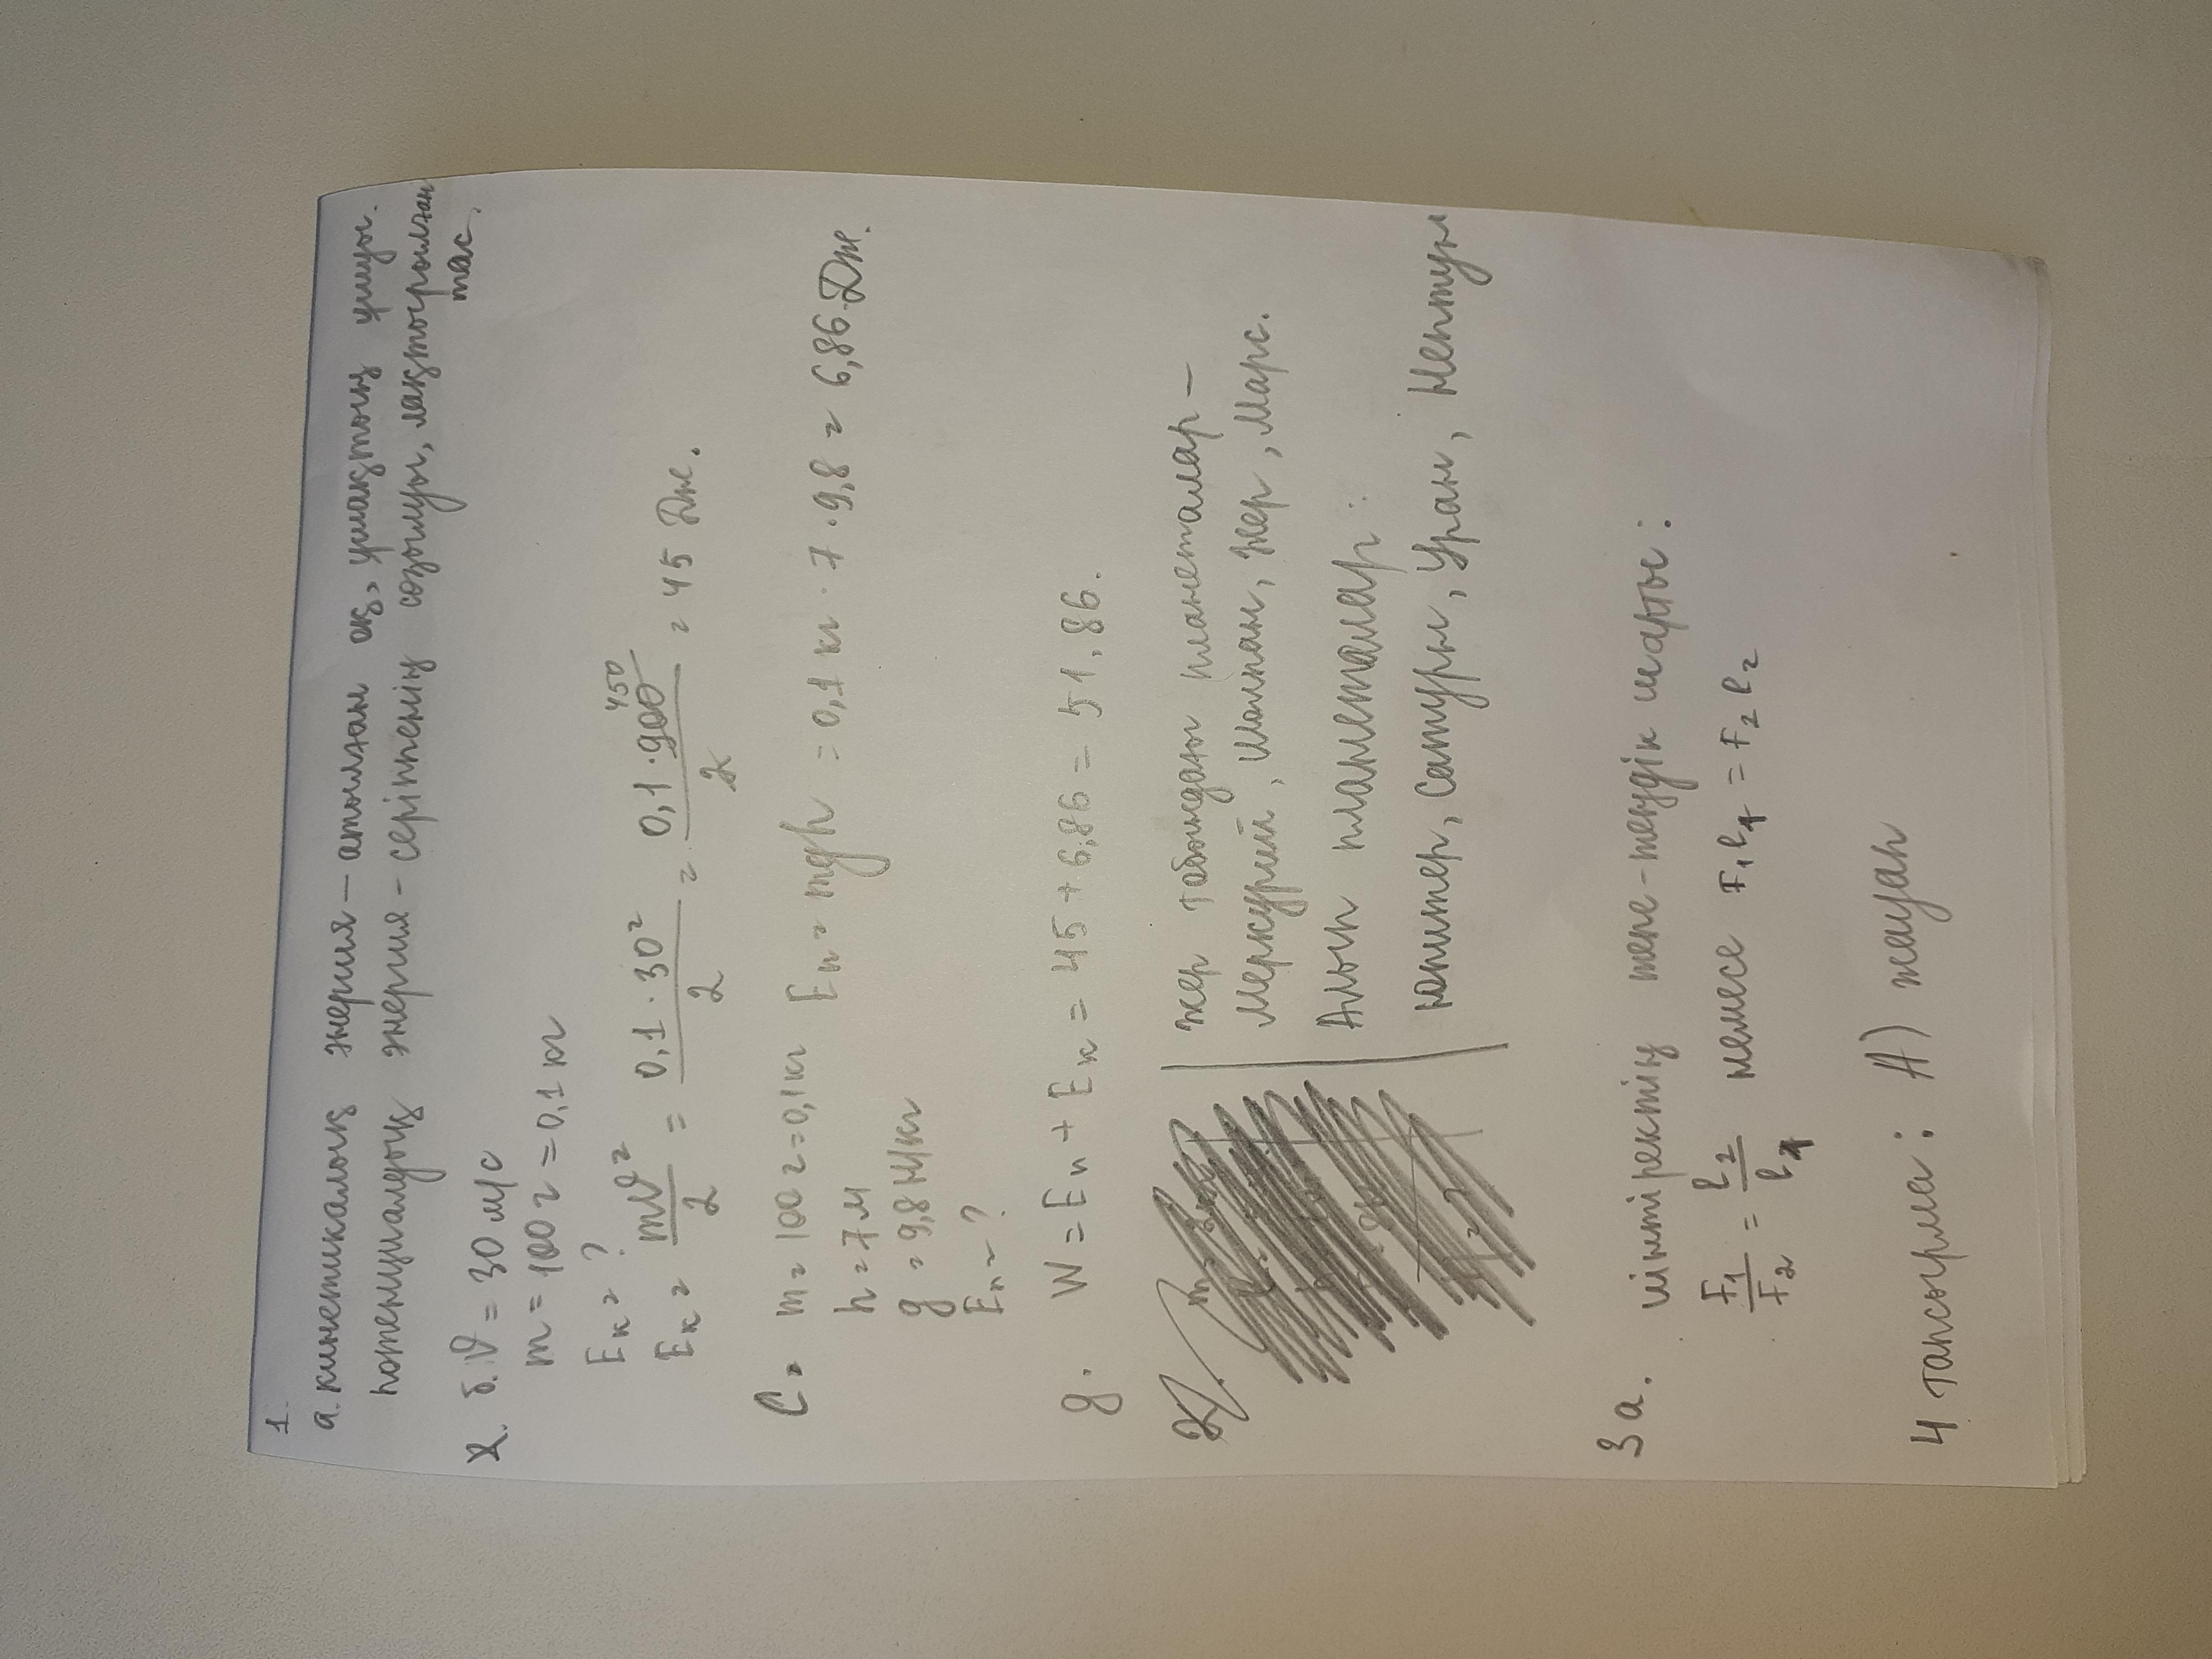 1.
а. кинетикалық энергия – атылған оқ, ұшақтың ұшуы.
потенциалдық энергия – серіппенің созылуы, лақтырылған
тас.
б. ϑ = 30 м/с
m = 100 г = 0,1 кг
Eк = ?
Eк = mϑ²/2 = 0,1 · 30²/2 = 0,1 · 900/2 = 45 Дж.
450
С. m = 100 г = 0,1 кг Eп = mgh = 0,1 кг · 7 · 9,8 = 6,86 Дж.
h = 7 м
g = 9,8 Н/кг
Eп = ?
g. W = Eп + Eк = 45 + 6,86 = 51,86.
жер тобындағы планеталар –
Меркурий, Шолпан, Жер, Марс.
Алып планеталар:
Юпитер, Сатурн, Уран, Нептун
3 а. иінтіректің тепе-теңдік шарты:
F₁/F₂ = l₂/l₁ немесе F₁l₁ = F₂l₂
4 тапсырма: А) жауап